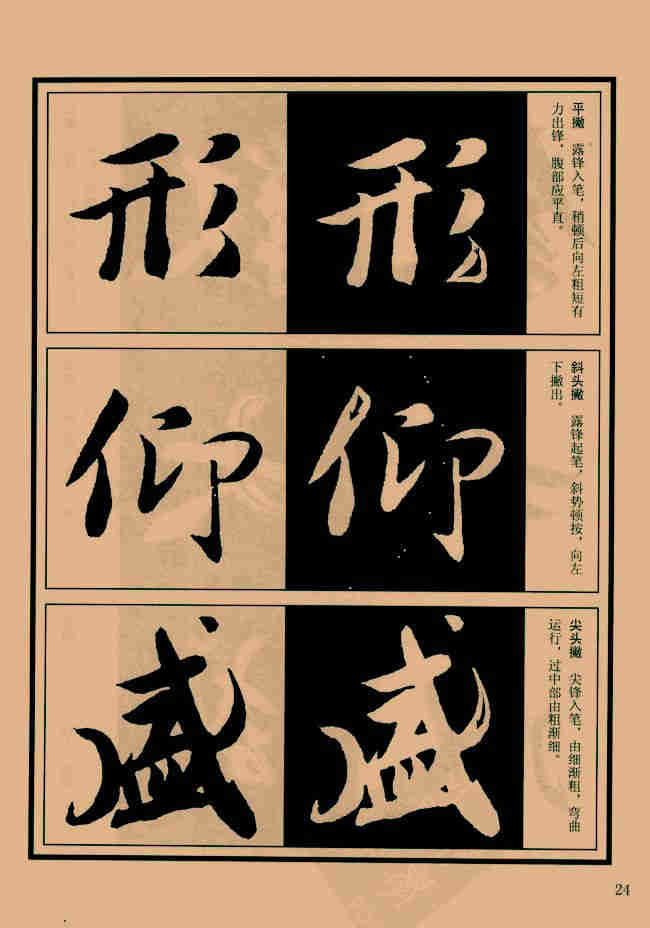 平撇　露锋入笔，稍顿后向左粗短有
力出锋，腹部应平直。
形
形
斜头撇　露锋起笔，斜势顿按，向左
下撇出。
仰
仰
尖头撇　尖锋入笔，由细渐粗，弯曲
运行，过中部由粗渐细。
盛
盛
24